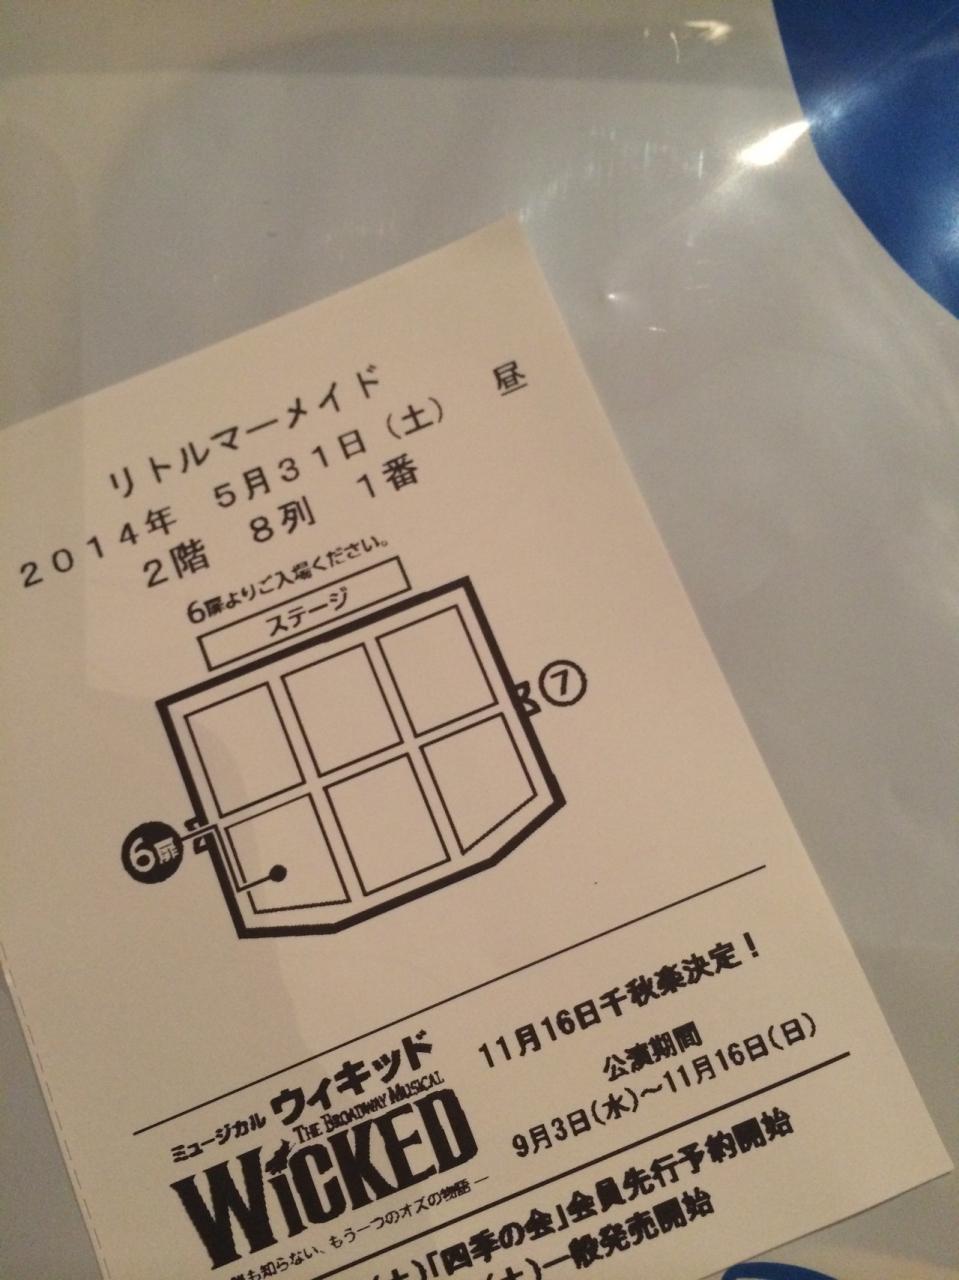 リトルマーメイド
2014年 5月31日（土） 昼
2階 8列 1番
6扉よりご入場ください。
ステージ
⑦
6扉
11月16日千秋楽決定！
ミュージカル ウィキッド
公演期間
THE BROADWAY MUSICAL
9月3日(水)～11月16日(日)
WICKED
も知らない、もう一つのオズの物語―
(土)「四季の会」会員先行予約開始
(土)一般発売開始